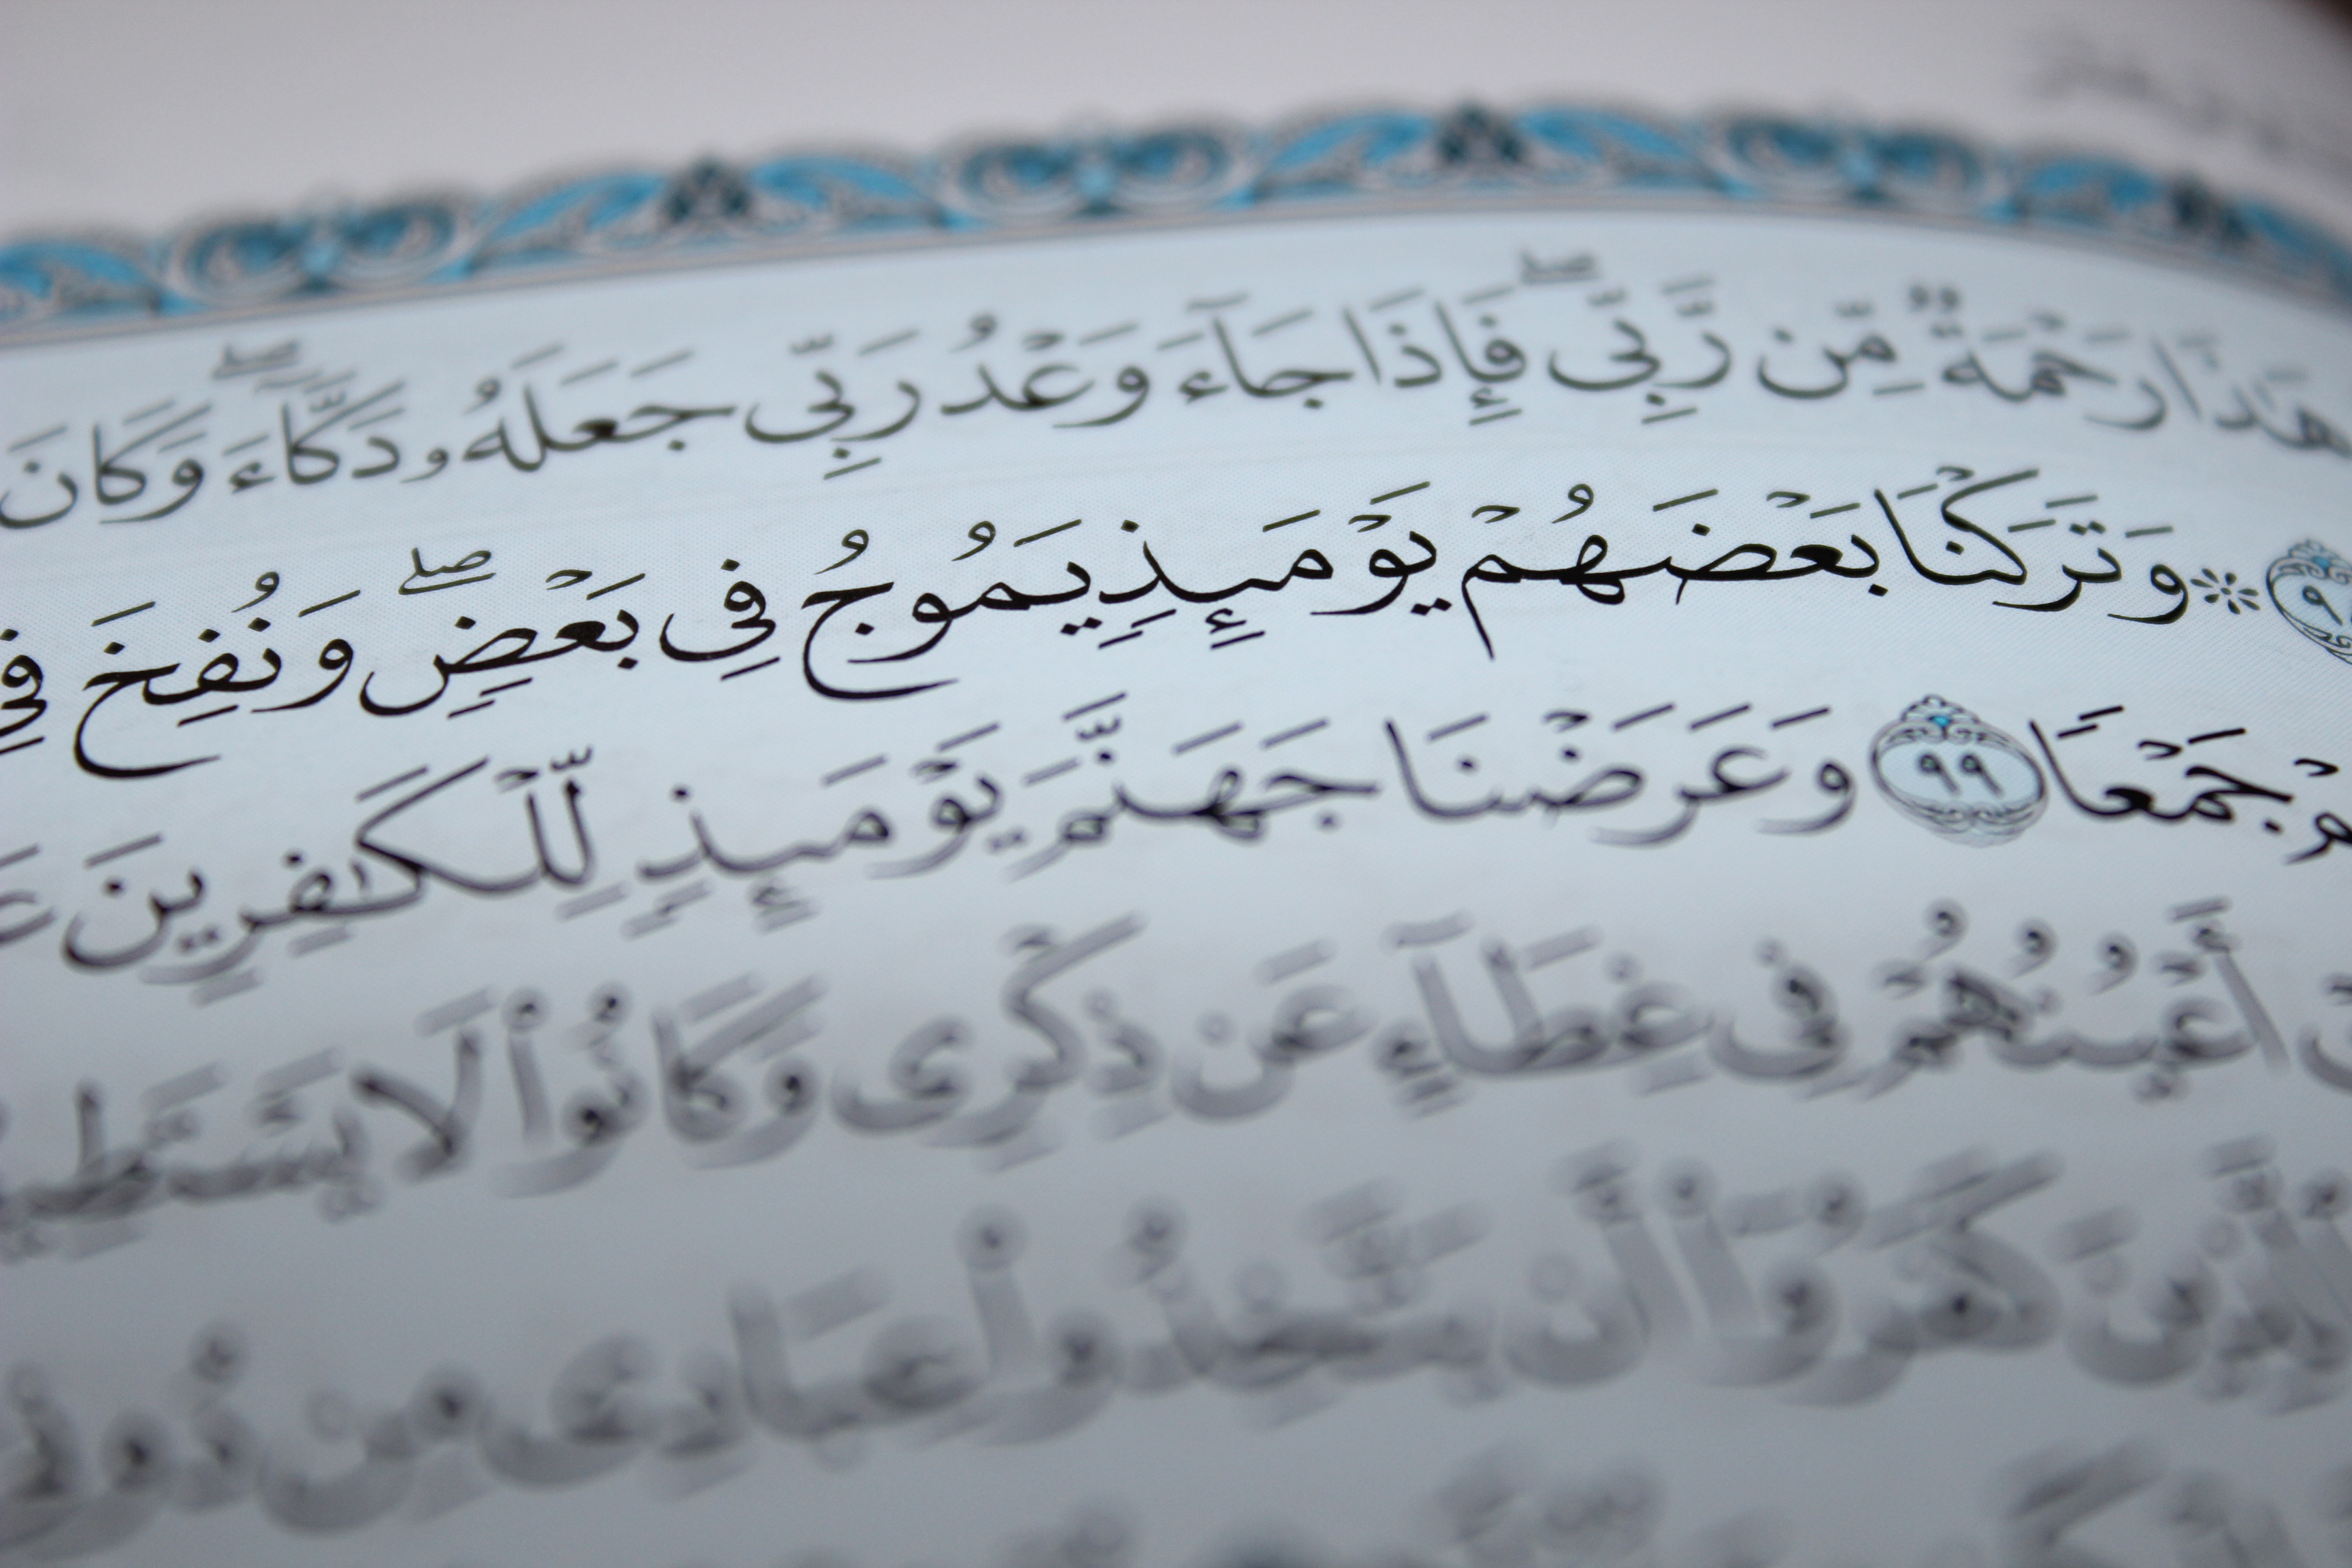 هَـٰذَا رَحْمَةٌ مِّن رَّبِّى ۖ فَإِذَا جَآءَ وَعْدُ رَبِّى جَعَلَهُۥ دَكَّآءَ ۖ وَكَانَ
۞ وَتَرَكْنَا بَعْضَهُمْ يَوْمَئِذٍ يَمُوجُ فِى بَعْضٍ ۖ وَنُفِخَ فِى
جَمْعًا ٩٩ وَعَرَضْنَا جَهَنَّمَ يَوْمَئِذٍ لِّلْكَـٰفِرِينَ
أَعْيُنُهُمْ فِى غِطَآءٍ عَن ذِكْرِى وَكَانُوا۟ لَا
كَفَرُوٓا۟ أَن يَتَّخِذُوا۟ عِبَادِى مِن دُونِىٓ